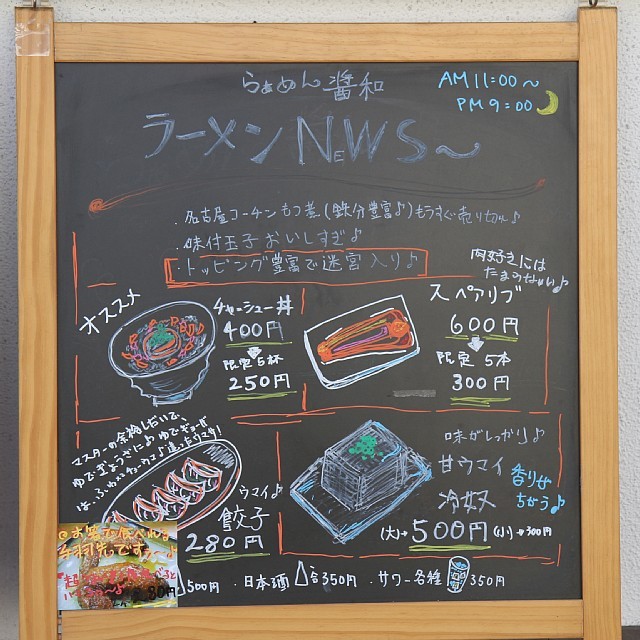 らぁめん 醤和
AM 11:00～
PM 9:00
ラーメンNEWS～
・名古屋コーチンもつ煮(鉄分豊富♪)もうすぐ売り切れ♪
・味付玉子おいしすぎ♪
・トッピング豊富で迷宮入り♪
肉好きには
たまらない♪
オススメ
チャーシュー丼
400円
限定5杯
250円
スペアリブ
600円
限定 5本
300円
マスターの
ウマイ♪
餃子
280円
味がしっかり♪
甘ウマイ
冷奴
香りぜ
ちがう♪
(大)→500円 (小)→300円
手羽先ですう～♪
500円
・日本酒 350円
・サワー各種 350円